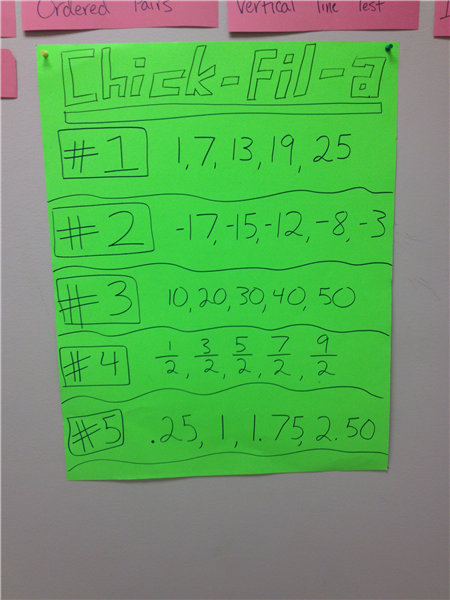 Ordered Pairs
Vertical line Test
Chick-Fil-a
#1 1, 7, 13, 19, 25
#2 -17, -15, -12, -8, -3
#3 10, 20, 30, 40, 50
#4 1/2, 3/2, 5/2, 7/2, 9/2
#5 .25, 1, 1.75, 2.50